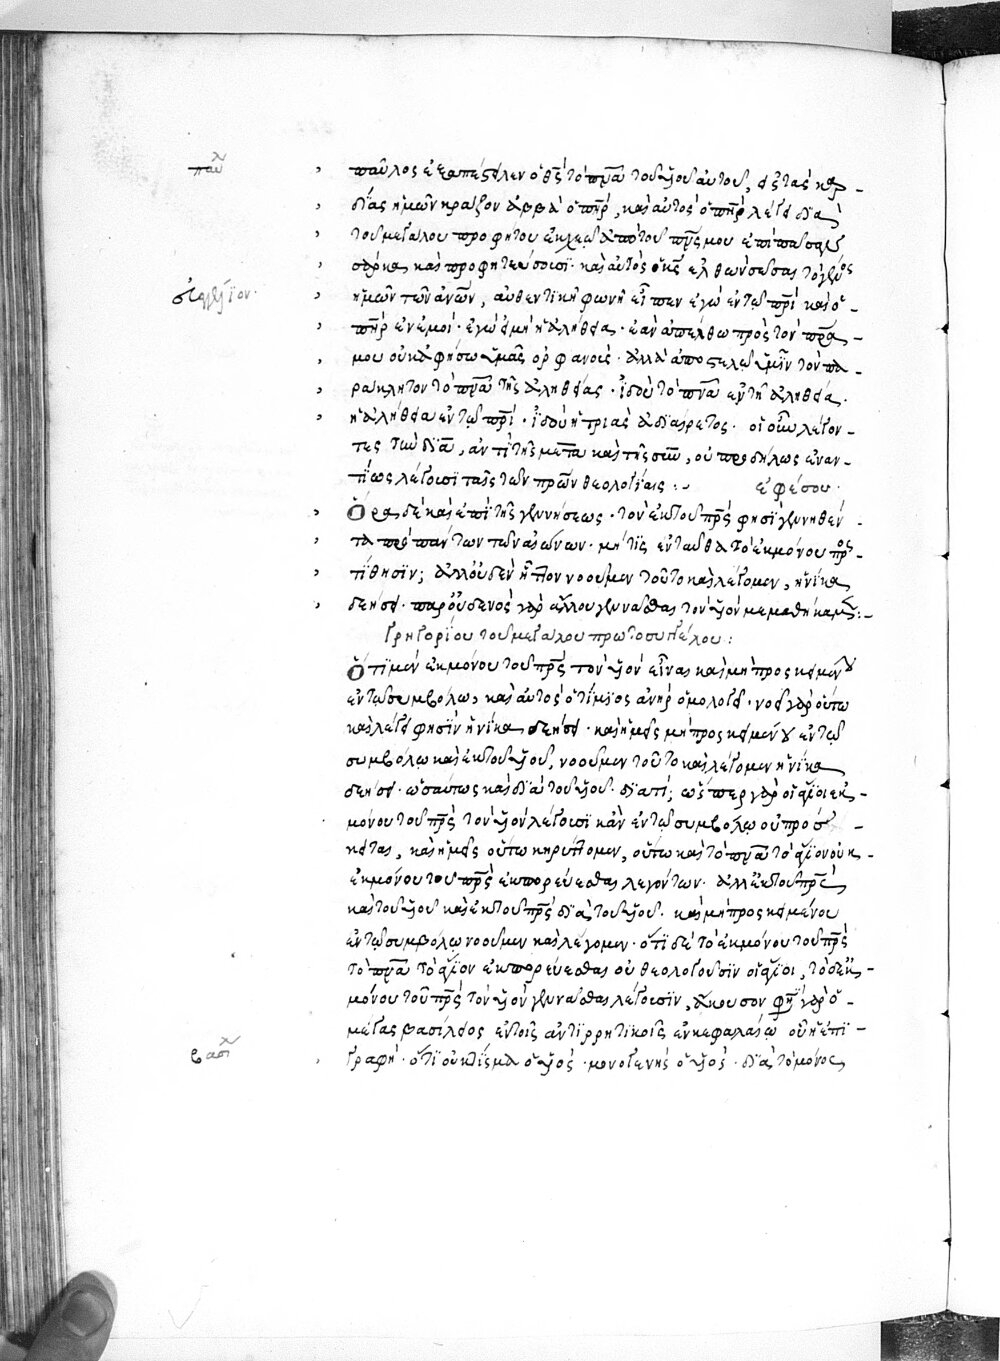 παῦλ
παῦλος ἐξαπέστειλεν ὁ θ̅ς̅ τὸ π̅ν̅α̅ τοῦ υἱοῦ αὐτοῦ, εἰς τὰς καρ-
δίας ἡμῶν κράζον ἀββᾶ ὁ π̅η̅ρ̅, καὶ αὐτὸς ὁ π̅η̅ρ̅ λέγει διὰ
τοῦ μεγάλου προφήτου ἐκχεῶ ἀπὸ τοῦ π̅ν̅ς̅ μου ἐπὶ πᾶσαν
σάρκα καὶ προφητεύσουσι· καὶ αὐτὸς ὁ κ̅ς̅ ἐλθὼν σῶσαι τὸ γένος
ἡμῶν τῶν ἀν̅ω̅ν̅, αὐθεντικῇ φωνῇ εἶπεν ἐγὼ ἐν τῷ π̅ρ̅ι̅ καὶ ὁ
π̅η̅ρ̅ ἐν ἐμοί· ἐγώ εἰμι ἡ ἀλήθεια· ἐὰν ἀπέλθω πρὸς τὸν π̅ρ̅α̅
μου οὐκ ἀφήσω ὑμᾶς ὀρφανούς· ἀλλὰ ἀποστελῶ ὑμῖν τὸν πα-
ράκλητον τὸ π̅ν̅α̅ τῆς ἀληθείας· ἰδοὺ τὸ π̅ν̅α̅ ἐν τῇ ἀληθείᾳ·
ἡ ἀλήθεια ἐν τῷ π̅ρ̅ι̅· ἰδοὺ ἡ τριὰς ἀδιαίρετος· οἱ οὖν λέγον-
τες τὴν διὰ, ἀντὶ τῆς μετὰ καὶ τῆς σὺν, οὐ προδήλως ἐναν-
τίως λέγουσι ταῖς τῶν π̅ρ̅ω̅ν̅ θεολογίαις :- ἐφέσου·
Ὅρα δὲ καὶ ἐπὶ τῆς γεννήσεως· τὸν ἐκ τοῦ π̅ρ̅ς̅ φησὶ γεννηθέν
τα πρὸ πάντων τῶν αἰώνων· μή τις ἐνταῦθα τὸ ἐκ μόνου προσ-
τίθησιν; ἀλλ' οὐδὲν ἧττον νοοῦμεν τοῦτο καὶ λέγομεν, ἡνίκα
δεήσει· παρ' οὐδενὸς γὰρ ἄλλου γεννᾶσθαι τὸν υἱὸν μεμαθήκαμεν :-
Γρηγορίου τοῦ μεγάλου πρωτοσυγκέλου :
Ὅτι μὲν ἐκ μόνου τοῦ π̅ρ̅ς̅ τὸν υἱὸν εἶναι καὶ μὴ προσκειμένου
ἐν τῷ συμβόλω, καὶ αὐτὸς ὁ τίμιος ἀνὴρ ὁμολογεῖ· νοεῖ γὰρ οὕτω
καὶ λέγει φησὶν ἡνίκα δεήσει· καὶ ἡμεῖς μὴ προσκειμένου ἐν τῷ
συμβόλω καὶ ἐκ τοῦ υἱοῦ, νοοῦμεν τοῦτο καὶ λέγομεν ἡνίκα
δεήσει· ὡσαύτως καὶ διὰ τοῦ υἱοῦ· διατί; ὥσπερ γὰρ οἱ ἅγιοι ἐκ
μόνου τοῦ π̅ρ̅ς̅ τὸν υἱὸν λέγουσι κἂν ἐν τῷ συμβόλω οὐ πρόσ-
κειται, καὶ ἡμεῖς οὕτω κηρύττομεν, οὕτω καὶ τὸ π̅ν̅α̅ τὸ ἅγιον οὐκ
ἐκ μόνου τοῦ π̅ρ̅ς̅ ἐκπορεύεσθαι λεγόντων· ἀλλ' ἐκ τοῦ π̅ρ̅ς̅
καὶ τοῦ υἱοῦ καὶ ἐκ τοῦ π̅ρ̅ς̅ διὰ τοῦ υἱοῦ· καὶ μὴ προσκειμένου
ἐν τῷ συμβόλω νοοῦμεν καὶ λέγομεν· ὅτι δὲ τὸ ἐκ μόνου τοῦ π̅ρ̅ς̅
τὸ π̅ν̅α̅ τὸ ἅγιον ἐκπορεύεσθαι οὐ θεολογοῦσιν οἱ ἅγιοι, τὸ δὲ ἐκ
μόνου τοῦ π̅ρ̅ς̅ τὸν υἱὸν γεννᾶσθαι λέγουσιν, ἄκουσον φησὶ γὰρ ὁ
μέγας βασίλειος ἐν τοῖς ἀντιρρητικοῖς ἐν κεφαλαίω οὗ ἡ ἐπι-
βασιλ
γραφή· ὅτι οὐ κτίσμα ὁ υἱός· μονογενὴς ὁ υἱὸς· διὰ τὸ μόνος